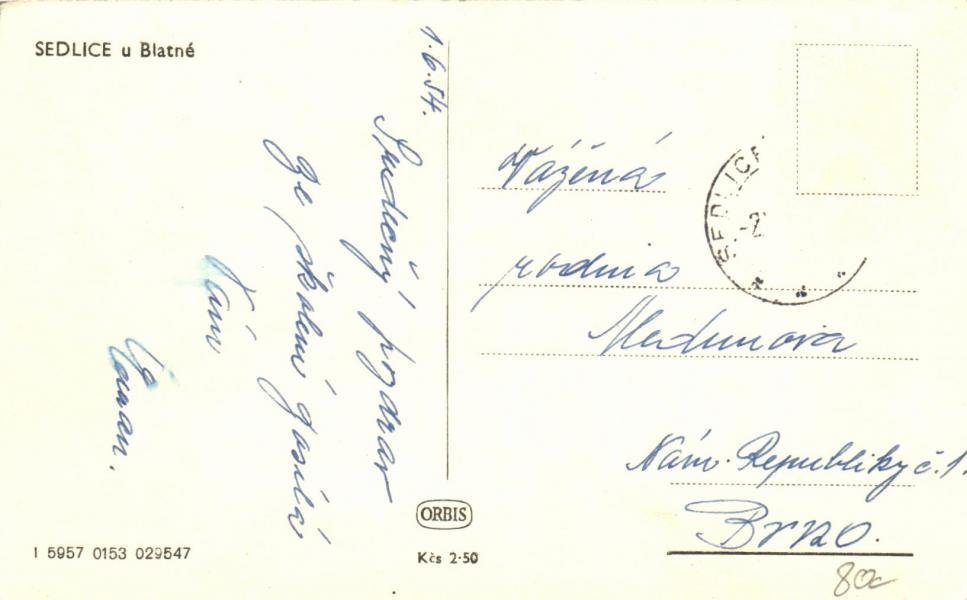 SEDLICE u Blatné
1.6.54.
Srdečný pozdrav
ze školení zasílá
Vám
Vážená
rodina
Nám. Republiky č. 1.
Brno.
SEDLICE
-2
ORBIS
Kčs 2·50
1 5957 0153 029547
80